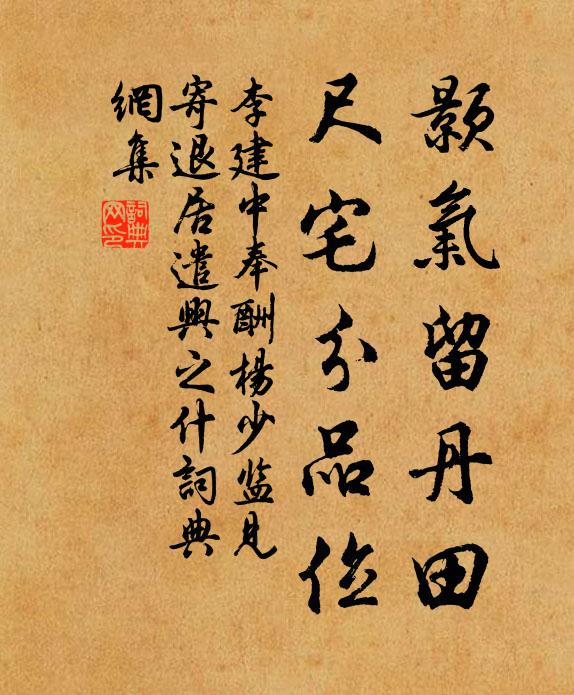 顥氣留丹田
尺宅分品位
李建中奉酬楊少监見
寄退居遣興之什詞典
網集
詞典
网印